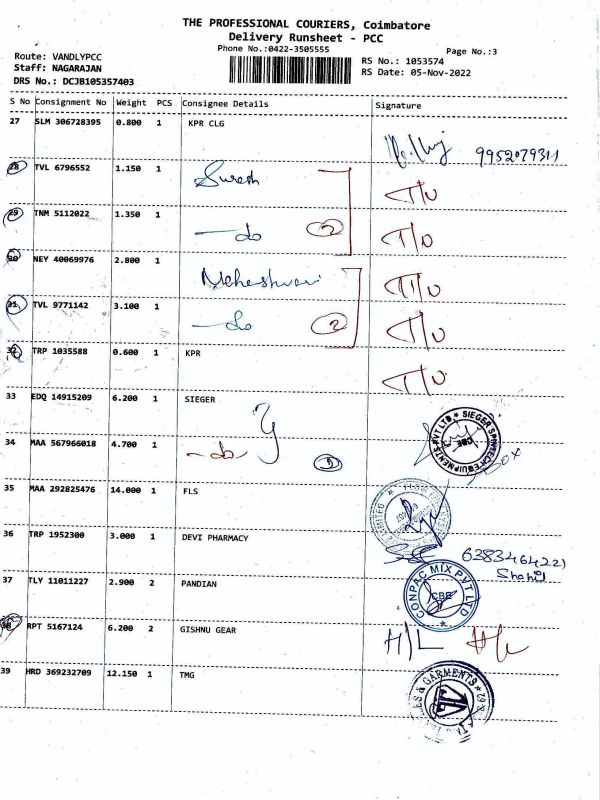 THE PROFESSIONAL COURIERS, Coimbatore
Delivery Runsheet - PCC
Phone No.:0422-3505555
Page No.:3
Route: VANDLYPCC
Staff: NAGARAJAN
DRS No.: DCJB105357403
RS No.: 1053574
RS Date: 05-Nov-2022
S No Consignment No Weight PCS Consignee Details Signature
27 SLM 306728395 0.800 1 KPR CLG
9952079311
28 TVL 6796552 1.150 1 Suresh T/O
29 TNM 5112022 1.350 1 -do 2 T/O
30 NEY 40069976 2.800 1 Maheshwari T/O
31 TVL 9771142 3.100 1 -do 2 T/O
32 TRP 1035588 0.600 1 KPR T/O
33 EDQ 14915209 6.200 1 SIEGER
SIEGER SPINTECH EQUIPMENTS PVT LTD. CBE
34 MAA 567966018 4.700 1 -do-
35 MAA 292825476 14.000 1 FLS
36 TRP 1952300 3.000 1 DEVI PHARMACY
37 TLY 11011227 2.900 2 PANDIAN
CONPAC MIX PVT LTD CBE
38 RPT 5167124 6.200 2 GISHNU GEAR H/L
39 HRD 369232709 12.150 1 TMG
& GARMENTS